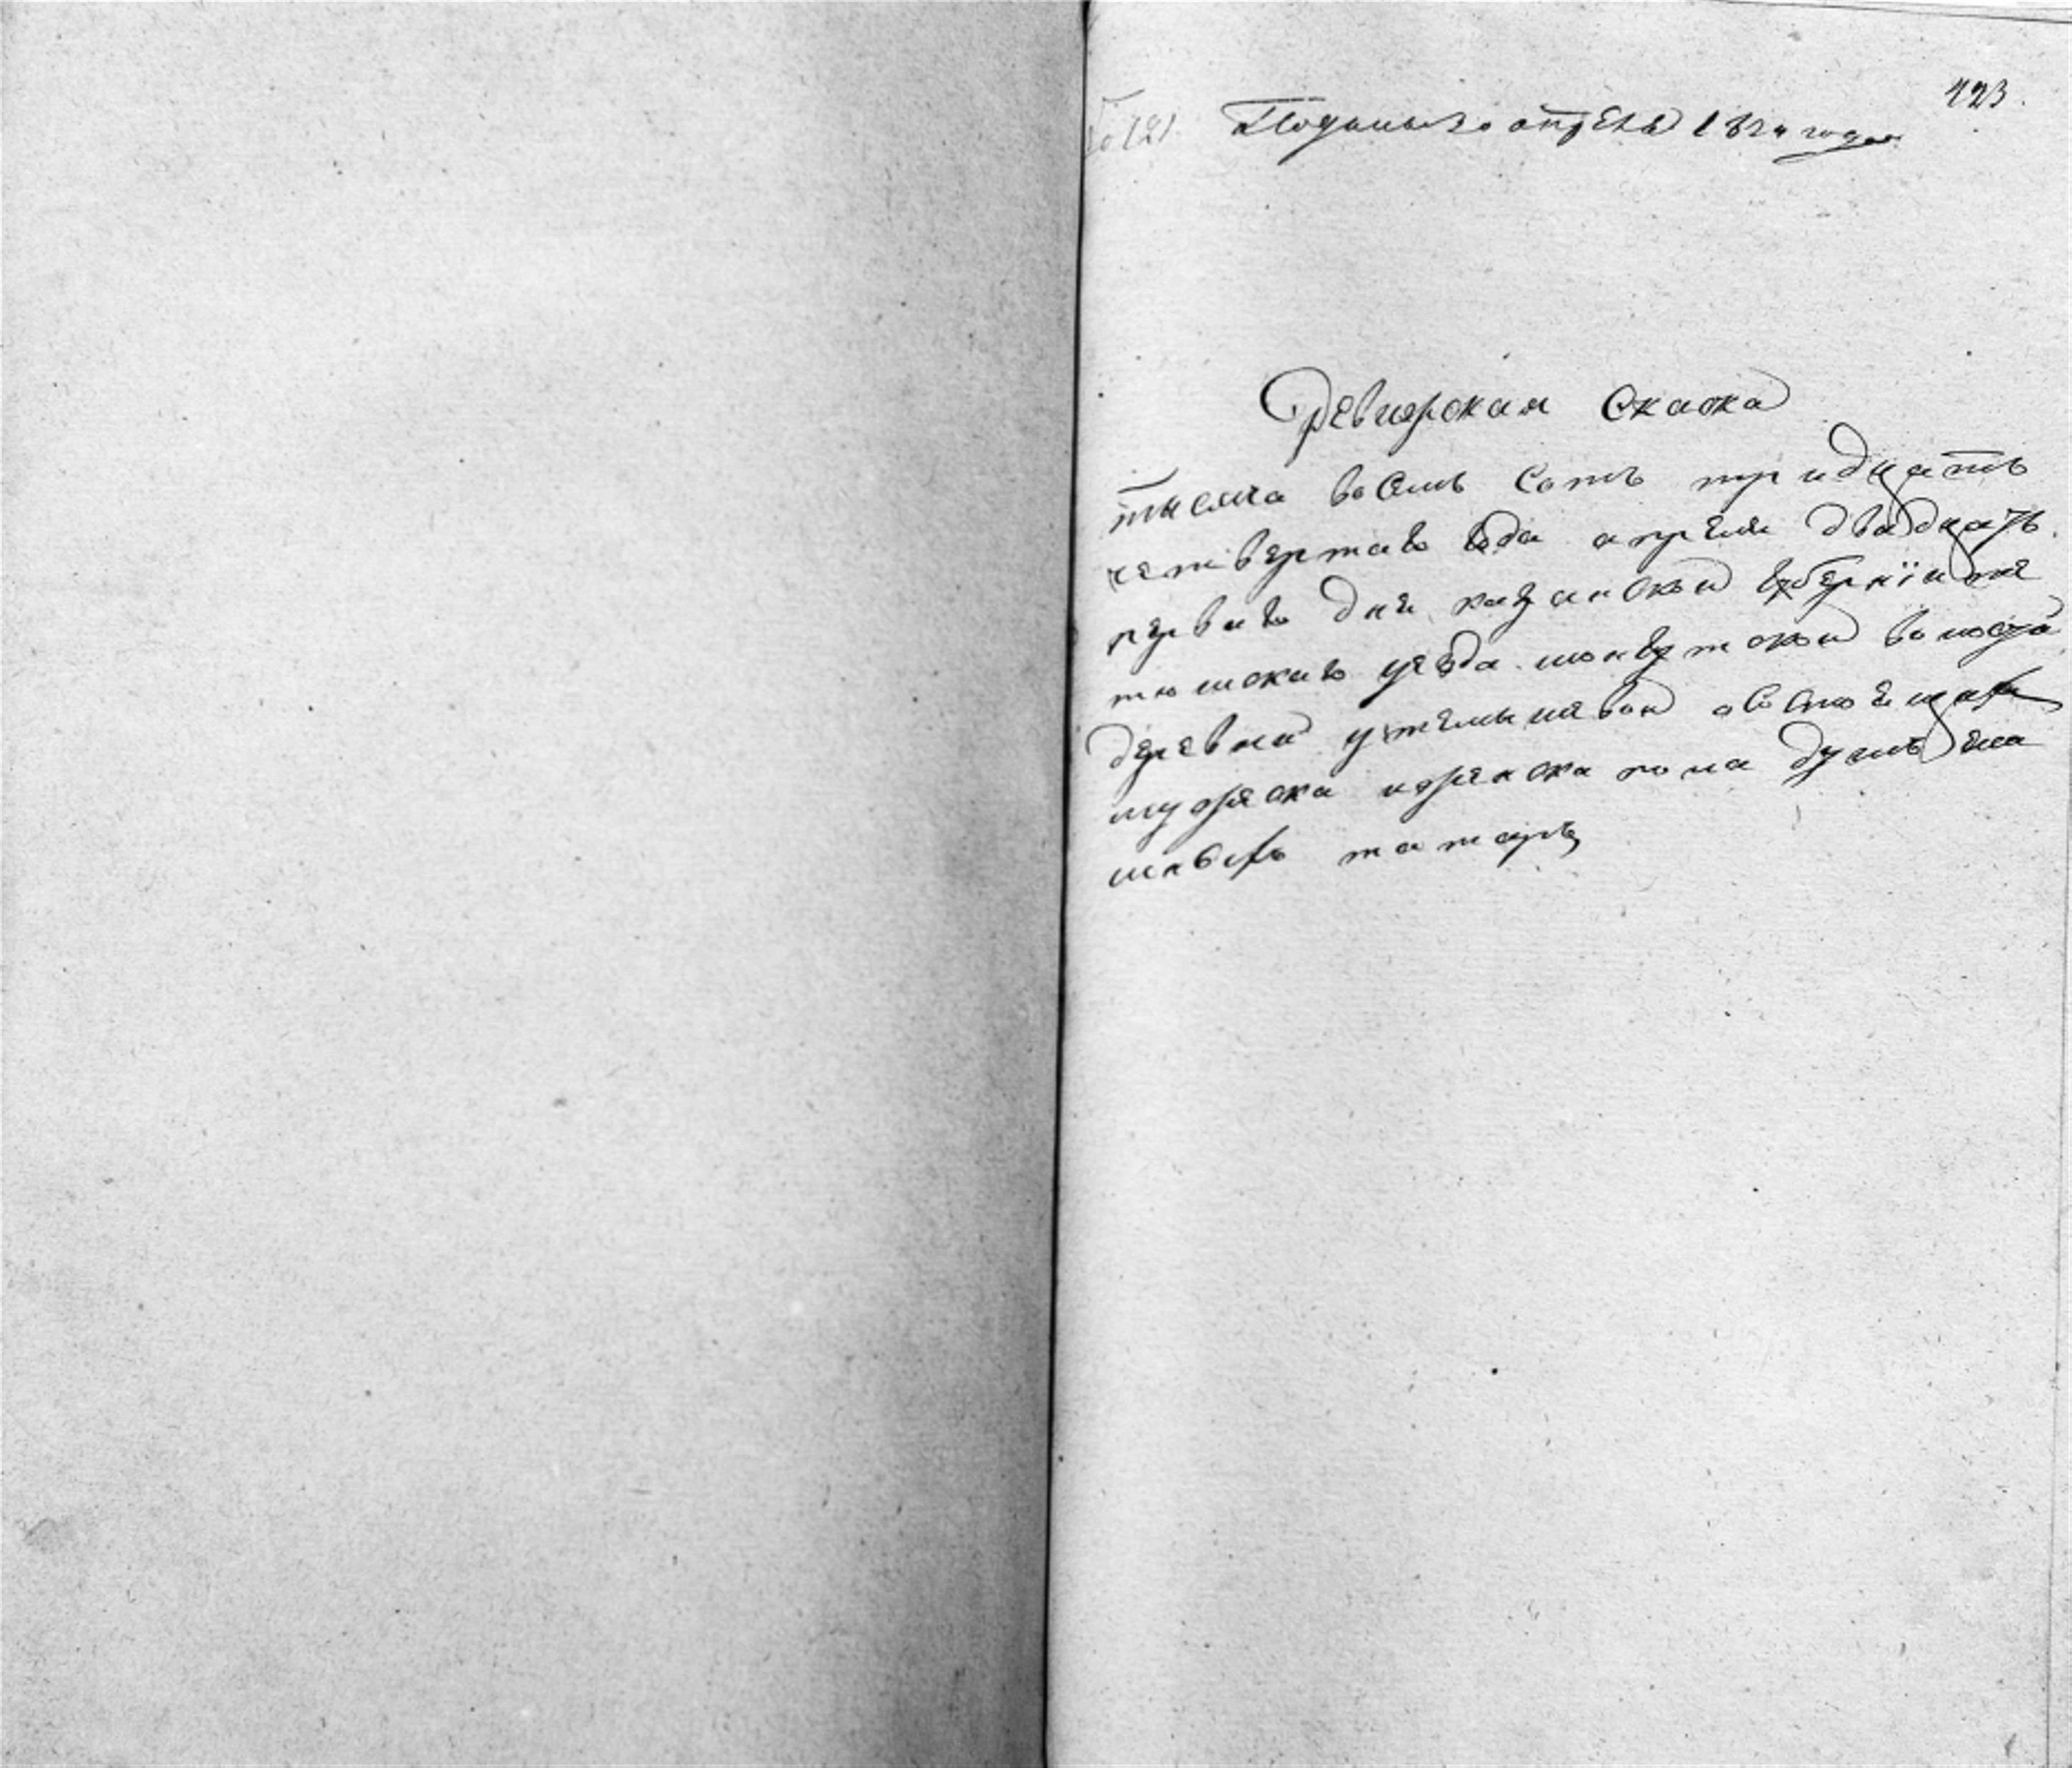 423.
Подана 30 апреля 1834 года
Ревижская Скаска
тысяча восемь Сотъ тридцать
четвертаго года апреля двадцать
перваго дня казанской губернїи те
тюшскаго уезда шонгутской волости
деревни утемышевой о состоящих
мужеска иженска пола душъ яса
шныхъ татаръ